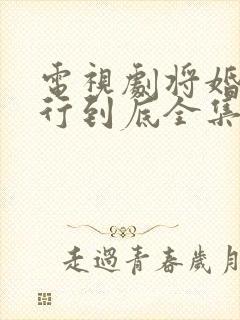 電視劇將婚
行到底全集
走過青春歲月